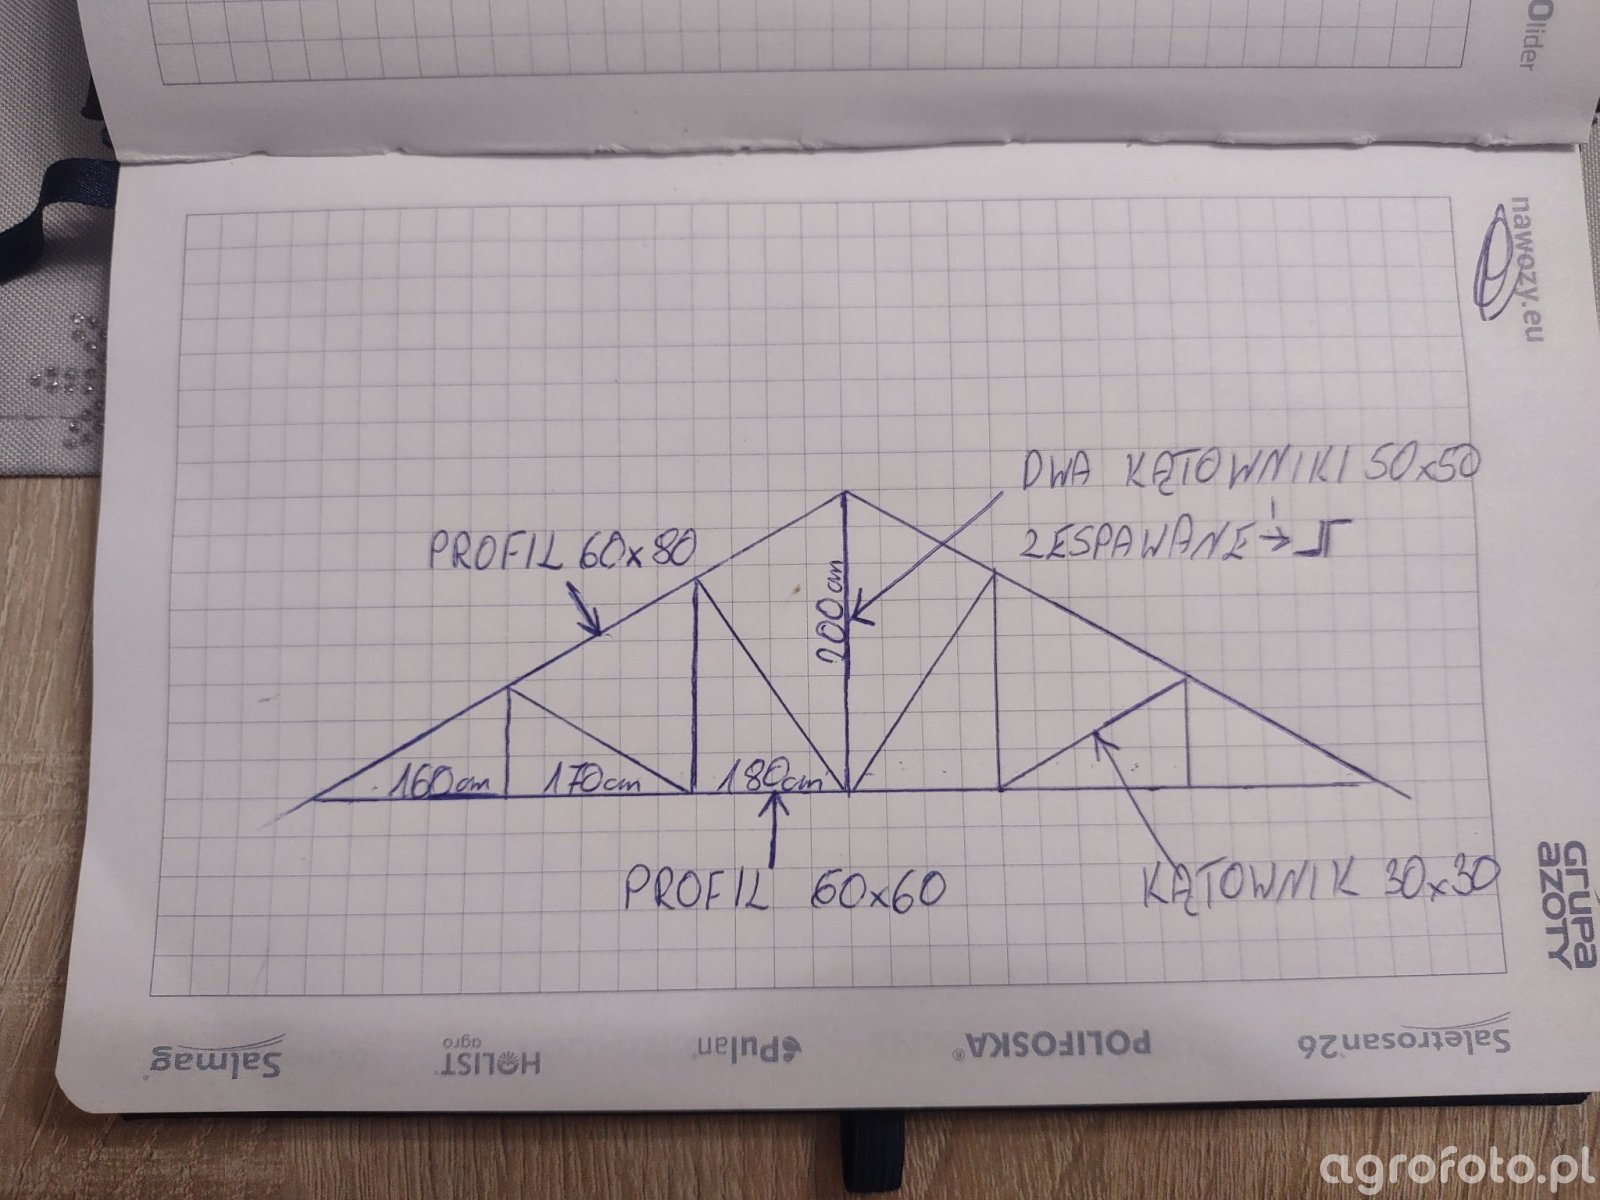 Olider
nawozy.eu
DWA KĄTOWNIKI 50x50
ZESPAWANE →
PROFIL 60x80
200cm
160cm
170cm
180cm
PROFIL 60x60
KĄTOWNIK 30x30
GRUPA
AZOTY
Salmag
HOLIST
agro
Pulan®
POLIFOSKA®
Saletrosan26®
agrofoto.pl